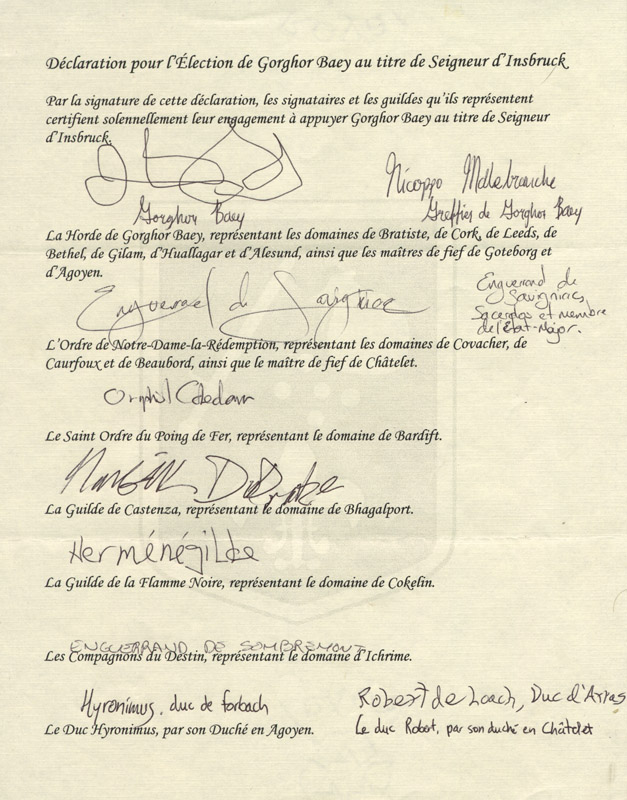 Déclaration pour l'Élection de Gorghor Baey au titre de Seigneur d'Insbruck
Par la signature de cette déclaration, les signataires et les guildes qu'ils représentent
certifient solennellement leur engagement à appuyer Gorghor Baey au titre de Seigneur
d'Insbruck.
Nicoppo Mallebranche
Gorghor Baey
Greffier de Gorghor Baey
La Horde de Gorghor Baey, représentant les domaines de Bratiste, de Cork, de Leeds, de
Bethel, de Gilam, d'Huallagar et d'Alesund, ainsi que les maîtres de fief de Goteborg et
d'Agoyen.
Enguerrand de
Enguerrand de
Savignies,
Sacerdos et membre
de l'État-Major.
L'Ordre de Notre-Dame-la-Rédemption, représentant les domaines de Covacher, de
Caurfoux et de Beaubord, ainsi que le maître de fief de Châtelet.
Le Saint Ordre du Poing de Fer, représentant le domaine de Bardift.
La Guilde de Castenza, représentant le domaine de Bhagalport.
Herménégilde
La Guilde de la Flamme Noire, représentant le domaine de Cokelin.
ENGUERRAND DE SOMBREMONT
Les Compagnons du Destin, représentant le domaine d'Ichrime.
Hyronimus, duc de forbach
Robert de Loach, Duc d'Arras
Le Duc Hyronimus, par son Duché en Agoyen.
Le duc Robert, par son duché en Châtelet